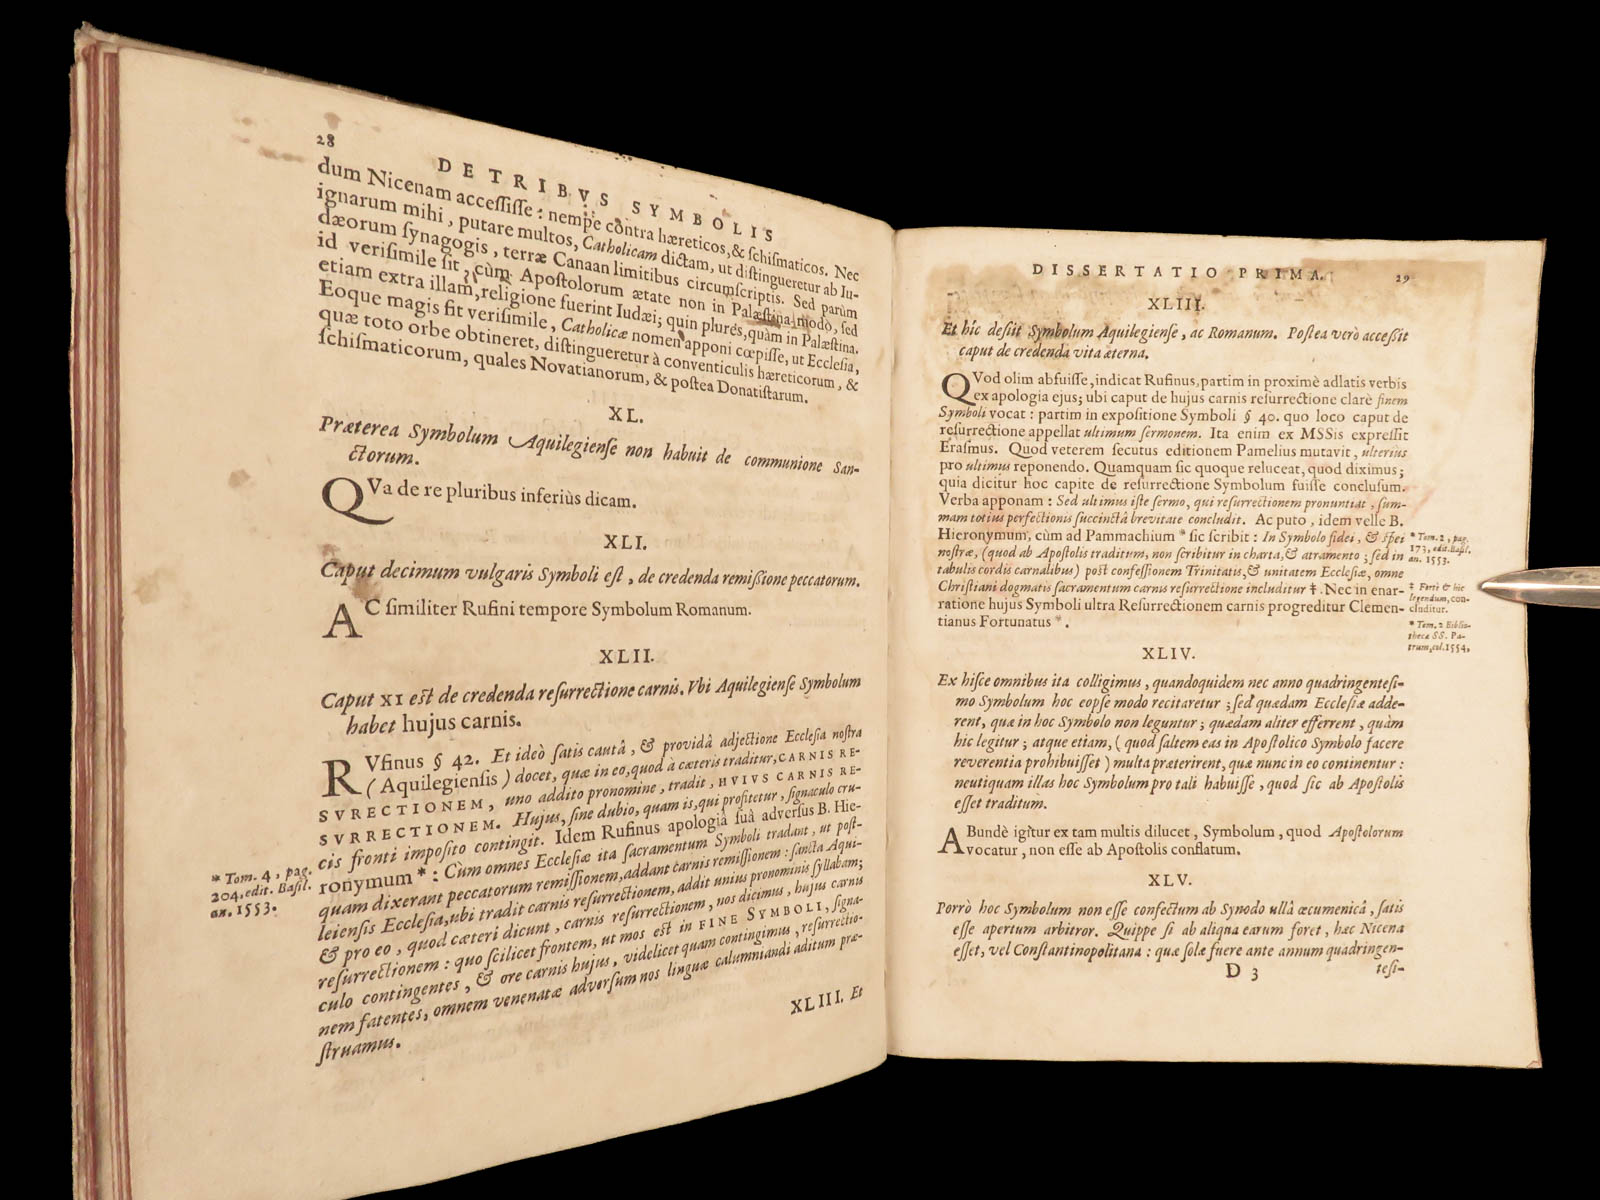 28
DE TRIBVS SYMBOLIS
dum Nicenam accessiſſe: nempe contra hæreticos, & ſchiſmaticos. Nec
ignarum mihi, putare multos, Catholicam dictam, ut diſtingueretur ab Iu-
dæorum ſynagogis, terræ Canaan limitibus circumſcriptis. Sed parùm
id veriſimile ſit, cùm Apoſtolorum ætate non in Palæſtina modò, ſed
etiam extra illam, religione fuerint Iudæi; quin plures, quàm in Palæſtina.
Eoque magis fit veriſimile, Catholicæ nomen apponi cœpiſſe, ut Eccleſia,
quæ toto orbe obtineret, diſtingueretur à conventiculis hæreticorum, &
ſchiſmaticorum, quales Novatianorum, & poſtea Donatiſtarum.
XL.
Præterea Symbolum Aquilegienſe non habuit de communione San-
ctorum.
QVa de re pluribus inferiùs dicam.
XLI.
Caput decimum vulgaris Symboli eſt, de credenda remiſſione peccatorum.
AC ſimiliter Rufini tempore Symbolum Romanum.
XLII.
Caput XI eſt de credenda reſurrectione carnis. Vbi Aquilegienſe Symbolum
habet hujus carnis.
RVfinus § 42. Et ideò ſatis cautâ, & providâ adjectione Eccleſia noſtra
(Aquilegienſis) docet, quæ in eo, quod à cæteris traditur, CARNIS RE-
SVRECTIONEM, uno addito pronomine, tradit, HVIVS CARNIS RE-
SVRRECTIONEM. Hujus, ſine dubio, quam is, qui profitetur, ſignaculo cru-
cis fronti impoſito contingit. Idem Rufinus apologiâ ſuâ adverſus B. Hie-
ronymum *: Cùm omnes Eccleſiæ ita ſacramentum Symboli tradant, ut poſt-
quam dixerant peccatorum remiſſionem, addant carnis remiſſionem: ſancta Aqui-
leienſis Eccleſia, ubi tradit carnis reſurrectionem, addit unius pronominis ſyllabam;
& pro eo, quod cæteri dicunt, carnis reſurrectionem, nos dicimus, hujus carnis
reſurrectionem: quo ſcilicet frontem, ut mos eſt in FINE SYMBOLI, ſigna-
culo contingentes, & ore carnis hujus, videlicet quam contingimus, reſurrectio-
nem fatentes, omnem venenatæ adverſum nos linguæ calumniandi aditum præ-
ſtruamus.
* Tom. 4, pag.
204, edit. Baſil.
an. 1553.
XLIII. Et
DISSERTATIO PRIMA.
29
XLIII.
Et hîc deſiit Symbolum Aquilegienſe, ac Romanum. Poſtea verò acceſſit
caput de credenda vita æterna.
QVod olim abfuiſſe, indicat Rufinus, partim in proximè adlatis verbis
ex apologia ejus; ubi caput de hujus carnis reſurrectione clarè finem
Symboli vocat: partim in expoſitione Symboli § 40. quo loco caput de
reſurrectione appellat ultimum ſermonem. Ita enim ex MSSis expreſſit
Eraſmus. Quod veterem ſecutus editionem Pamelius mutavit, ulterius
pro ultimus reponendo. Quamquam ſic quoque reluceat, quod diximus;
quia dicitur hoc capite de reſurrectione Symbolum fuiſſe concluſum.
Verba apponam: Sed ultimus iſte ſermo, qui reſurrectionem pronuntiat, ſum-
mam totius perfectionis ſuccinctâ brevitate concludit. Ac puto, idem velle B.
Hieronymum, cùm ad Pammachium * ſic ſcribit: In Symbolo fidei, & ſpei
noſtræ, (quod ab Apoſtolis traditum, non ſcribitur in charta, & atramento; ſed in
tabulis cordis carnalibus) poſt confeſſionem Trinitatis, & unitatem Eccleſiæ, omne
Chriſtiani dogmatis ſacramentum carnis reſurrectione includitur ‡. Nec in enar-
ratione hujus Symboli ultra Reſurrectionem carnis progreditur Clemen-
tianus Fortunatus *.
* Tom. 2, pag.
173, edit. Baſil.
an. 1553.
‡ Fortè & hîc
legendum, con-
cluditur.
* Tom. 2 Biblio-
thecæ SS. Pa-
trum, col. 1554.
XLIV.
Ex hiſce omnibus ita colligimus, quandoquidem nec anno quadringenteſi-
mo Symbolum hoc eopſe modo recitaretur; ſed quædam Eccleſiæ adde-
rent, quæ in hoc Symbolo non leguntur; quædam aliter efferrent, quàm
hic legitur; atque etiam, (quod ſaltem eas in Apoſtolico Symbolo facere
reverentia prohibuiſſet) multa præterirent, quæ nunc in eo continentur:
neutiquam illas hoc Symbolum pro tali habuiſſe, quod ſic ab Apoſtolis
eſſet traditum.
ABundè igitur ex tam multis dilucet, Symbolum, quod Apoſtolorum
vocatur, non eſſe ab Apoſtolis conflatum.
XLV.
Porrò hoc Symbolum non eſſe confectum ab Synodo ullâ œcumenicâ, ſatis
eſſe apertum arbitror. Quippe ſi ab aliqua earum foret, hæc Nicena
eſſet, vel Conſtantinopolitana: quæ ſolæ fuere ante annum quadringen-
D 3
teſi-